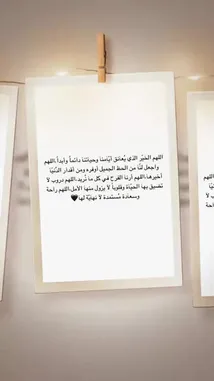 اللهم الخير الذي يُعانق أيّامنا وحياتنا دائماً وأبداً،اللهم
وأجعل لنّا من الحظ الجميل أوفره ومن أقدار الدُنيّا
أخيرها،اللهم أرنا الفرح في كل ما نُريد،اللهم دروب لا
تضيق بها الحيّاة وقلوباً لا يزول منها الأمل،اللهم راحة
وسعادة مُستمدة لا نهاية لها🖤